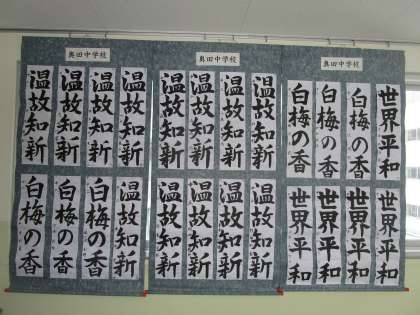 奥田中学校
温故知新
温故知新
温故知新
温故知新
温故知新
白梅の香
白梅の香
白梅の香
奥田中学校
温故知新
温故知新
温故知新
温故知新
温故知新
温故知新
温故知新
温故知新
奥田中学校
世界平和
白梅の香
白梅の香
白梅の香
世界平和
世界平和
世界平和
世界平和